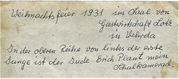 Weihnachtsfeier 1931 im Saal von
Gastwirtschaft Lotz
in Velveda
In der oberen Reihe von links der erste
Junge ist der Jude Erich Plaut mein
Schulkamerad